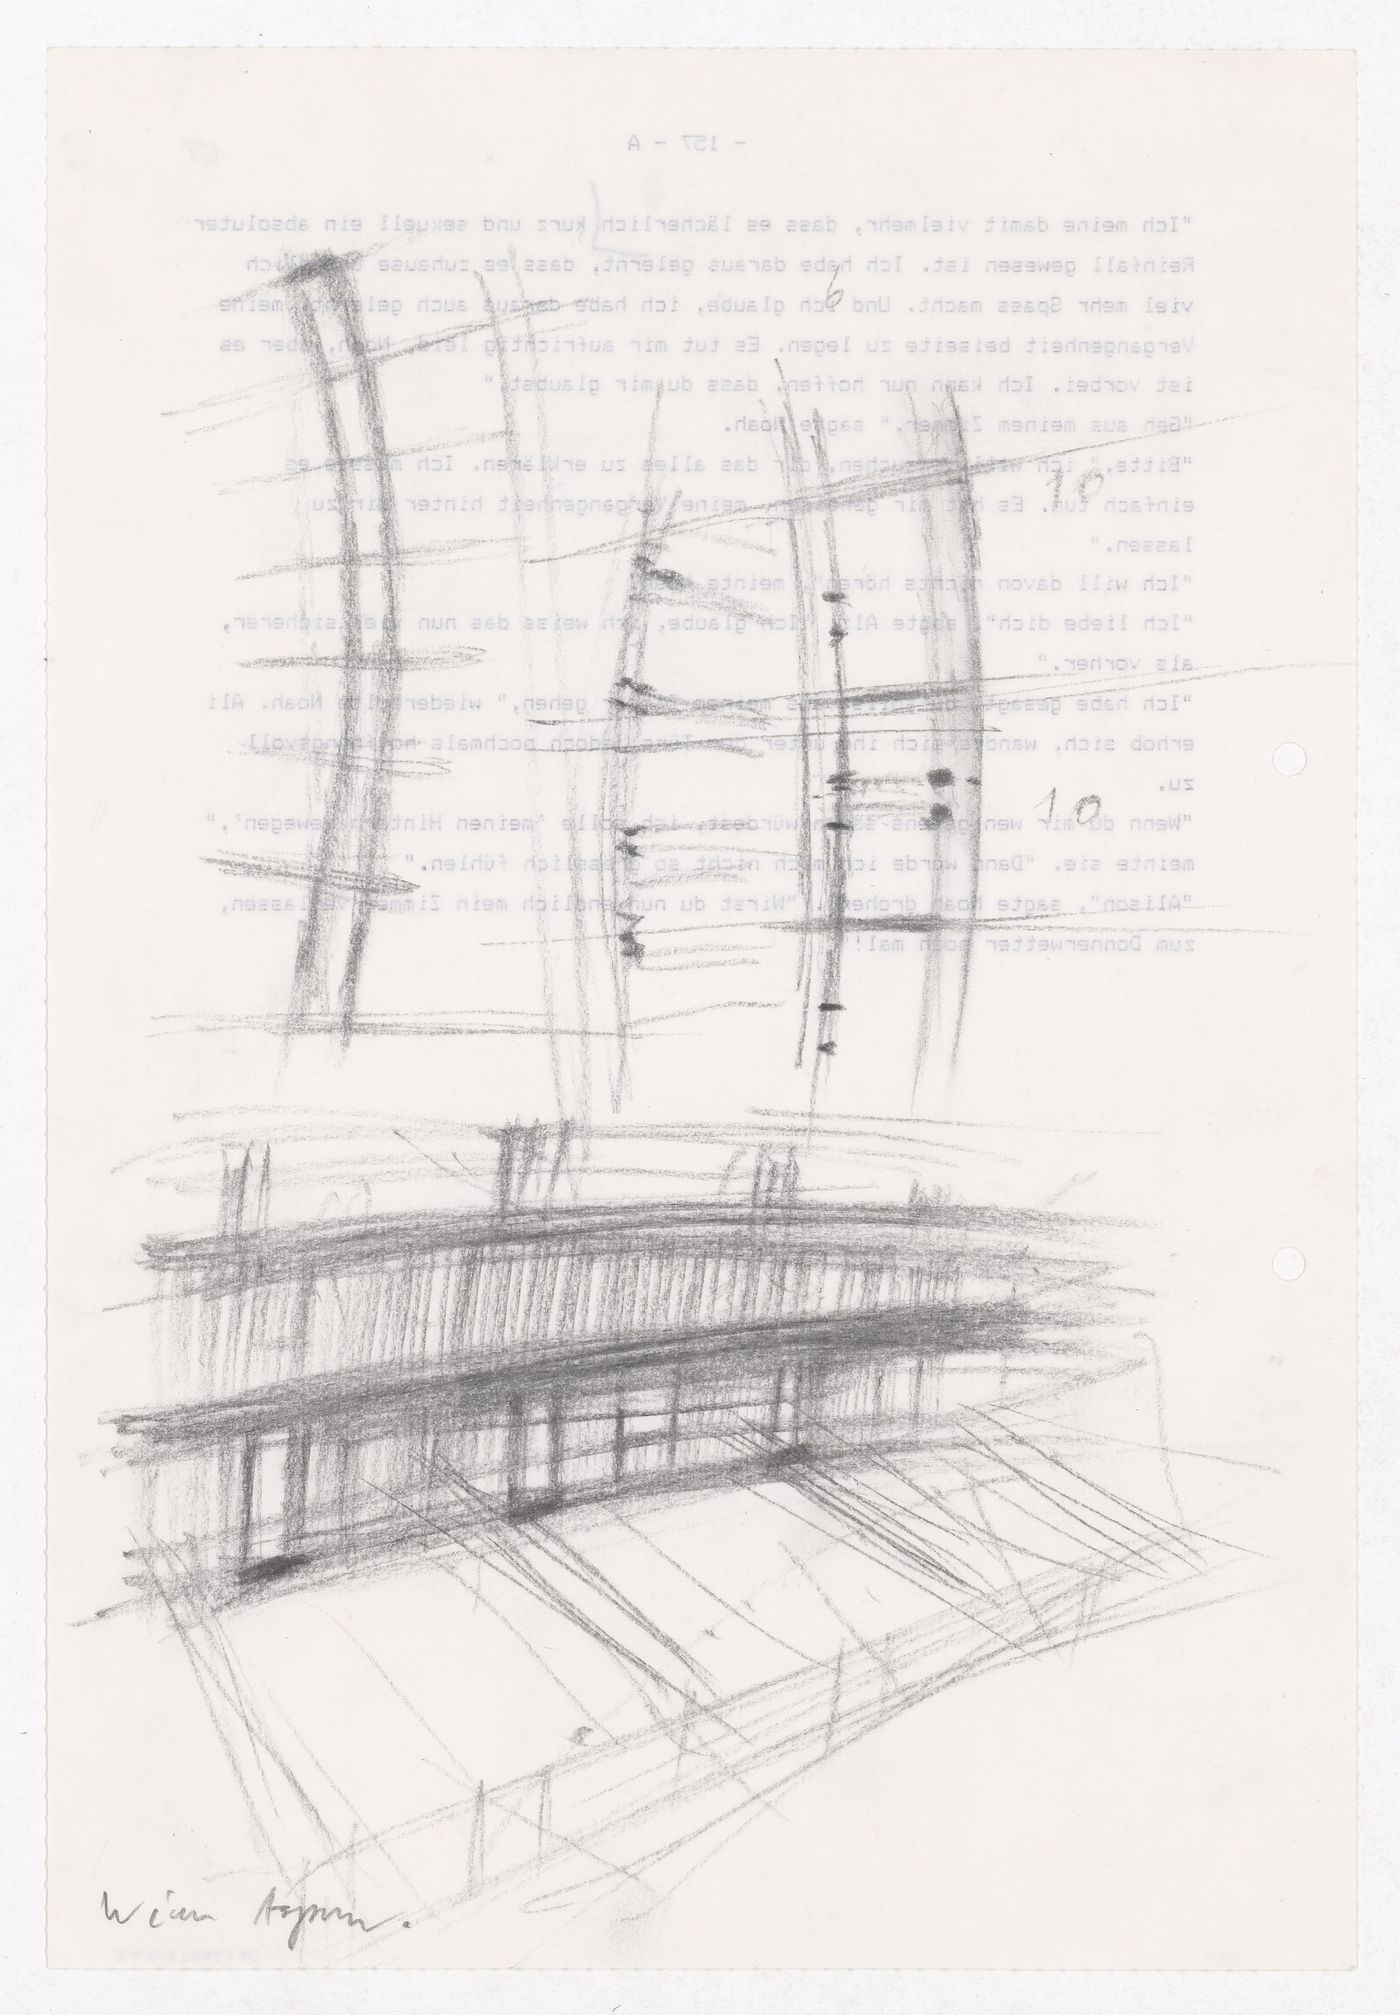 - 157 - A
"Ich meine damit vielmehr, dass es lächerlich kurz und sexuell ein absoluter
Reinfall gewesen ist. Ich habe daraus gelernt, dass es zuhause
viel mehr Spass macht. Und ich glaube, ich habe daraus auch gelernt, meine
Vergangenheit beiseite zu legen. Es tut mir aufrichtig leid, Noah, aber es
ist vorbei. Ich kann nur hoffen, dass du mir glaubst."
"Geh aus meinem Zimmer," sagte Noah.
"Bitte," ich will versuchen, dir das alles zu erklären. Ich musste es
einfach tun. Es hat mir geholfen, meine Vergangenheit hinter mir zu
lassen."
"Ich will davon nichts hören", meinte
"Ich liebe dich" sagte Ali. "Ich glaube, ich weiss das nun viel sicherer,
als vorher."
"Ich habe gesagt, du aus meinem Zimmer gehen," wiederholte Noah. Ali
erhob sich, wandte sich unter der Türe jedoch nochmals hoffnungsvoll
zu.
"Wenn du mir wenigstens sagen würdest, ich solle 'meinen Hintern bewegen',"
meinte sie. "Dann würde ich mich nicht so grässlich fühlen."
"Alison", sagte Noah drohend. "Wirst du nun endlich mein Zimmer verlassen,
zum Donnerwetter noch mal!"
6
10
10